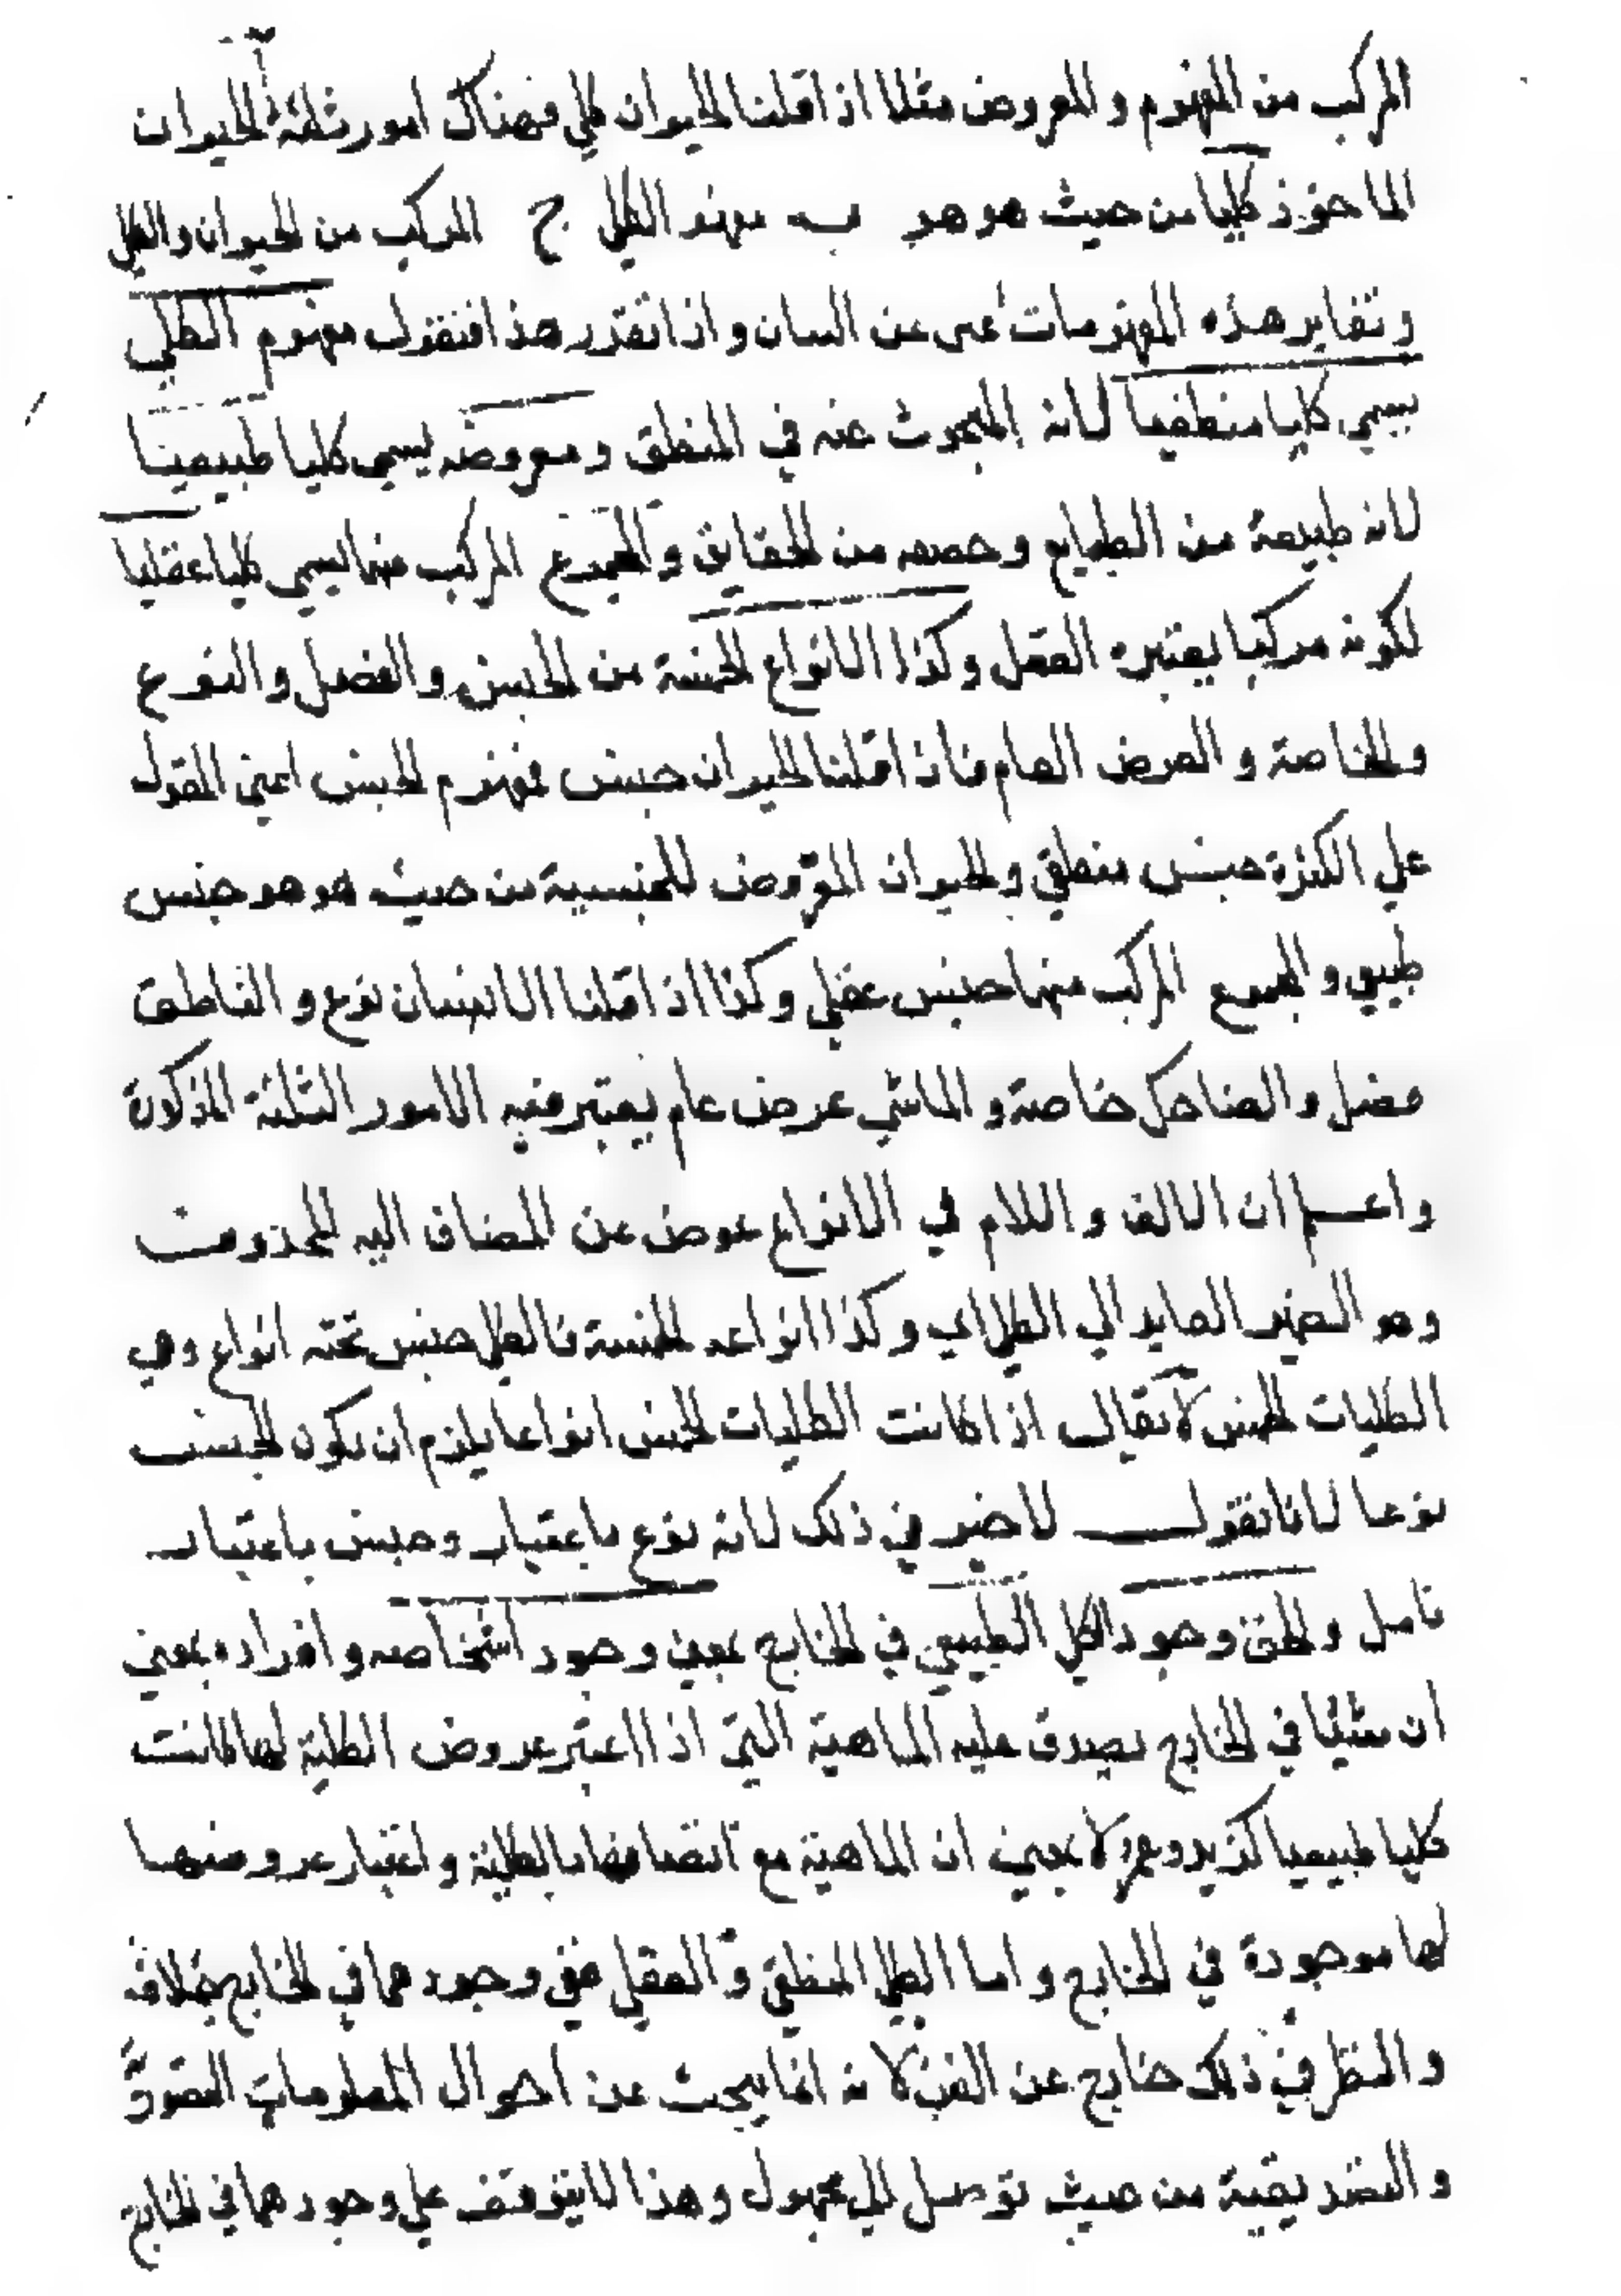 المركب من المفهوم والمعروض مثلا اذا قلنا الحيوان كلي فهناك امور ثلثة آ الحيوان
الماخوذ كليا من حيث هو هو ب مفهوم الكلي ج المركب من الحيوان والكلي
وتغاير هذه المفهومات غنى عن البيان واذا تقرر هذا فنقول مفهوم الكلي
يسمي كليا منطقيا لانه المبحوث عنه في المنطق ومعروضه يسمى كليا طبيعيا
لانه طبيعة من الطبايع وحصه من الحقايق والمجموع المركب منهما يسمي كليا عقليا
لكونه مركبا يعتبره العقل وكذا الانواع الخمسة من الجنس والفصل والنوع
والخاصة والعرض العام فاذا قلنا الحيوان جنس فمفهوم الجنس اعني المقول
علي الكثرة جنس منطقي والحيوان المعروض للجنسية من حيث هو هو جنس
طبيعي والمجموع المركب منهما جنس عقلي وكذا اذا قلنا الانسان نوع والناطق
فصل والضاحك خاصة والماشي عرض عام يعتبر فيه الامور الثلثة المذكورة
واعلم ان الالف واللام في الانواع عوض عن المضاف اليه المحذوف
وهو الضمير العايد الي الكلي اي وكذا انواعه الخمسة فالكلي جنس تحته انواع وهي
الكليات الخمس لا يقال اذا كانت الكليات الخمس انواعا يلزم ان يكون الجنس
نوعا لانا نقول لا ضير في ذلك لانه نوع باعتبار وجنس باعتبار
تامل والحق وجود الكلي الطبيعي في الخارج بمعني وجود اشخاصه وافراده بمعني
ان شيئا في الخارج يصدق عليه الماهية التي اذا اعتبر عروض الكلية لها كانت
كليا طبيعيا كزيد وعمرو لا بمعني ان الماهية مع اتصافها بالكلية واعتبار عروضها
لها موجودة في الخارج واما الكلي المنطقي والعقلي ففي وجودهما في الخارج خلاف
والنظر في ذلك خارج عن الفن لانه انما يبحث عن احوال المعلومات التصورية
والتصديقية من حيث توصل الي مجهول وهذا لا يتوقف علي وجودهما في الخارج